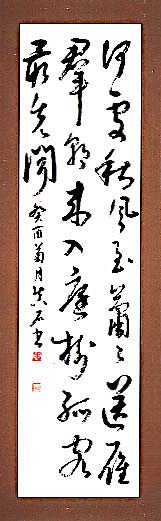 何處秋風至蕭々送雁
羣朝来入庭樹孤客
最先聞
癸酉菊月石書